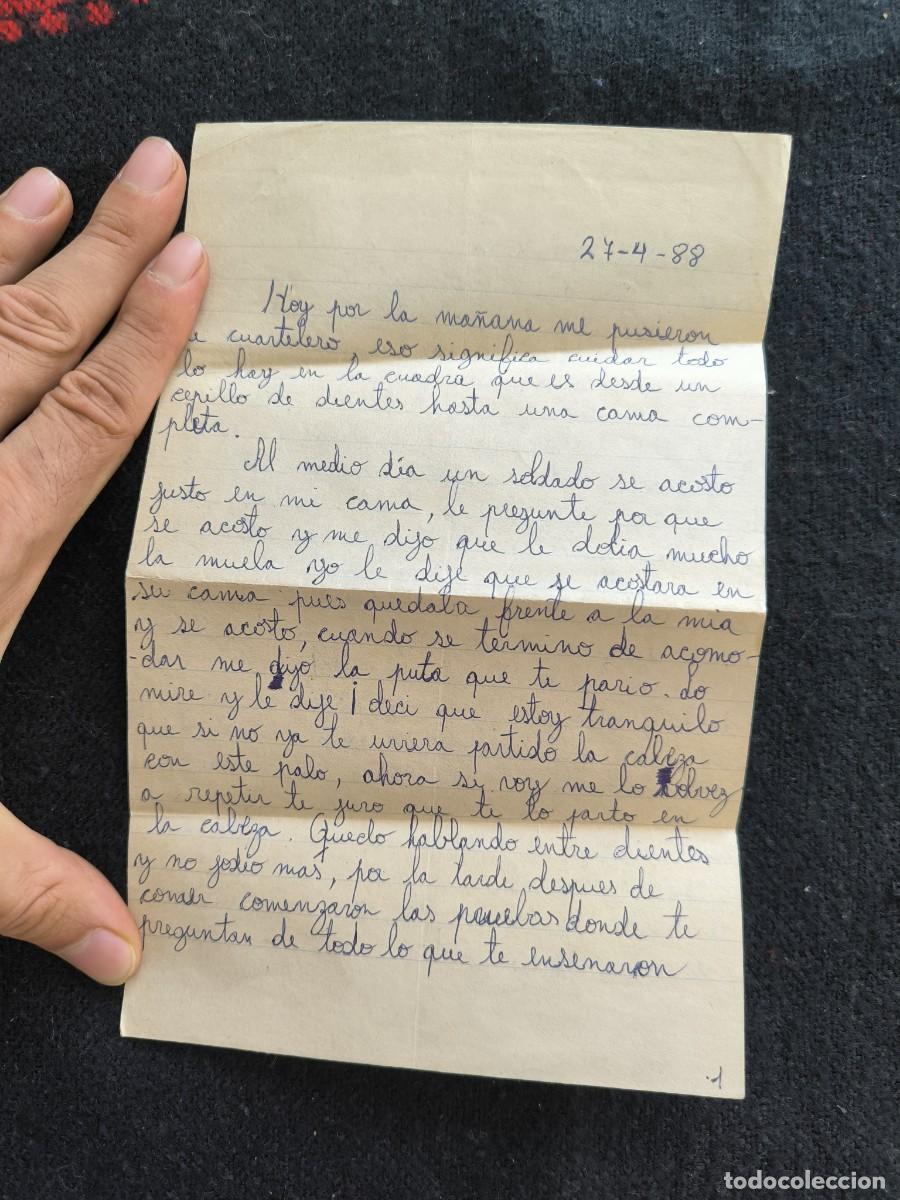 27-4-88
Hoy por la mañana me pusieron
e cuartelero, eso significa cuidar todo
lo hay en la cuadra que es desde un
cepillo de dientes hasta una cama com-
pleta.
Al medio día un soldado se acosto
justo en mi cama, le pregunte por que
se acosto y me dijo que le dolia mucho
la muela yo le dije que se acostara en
su cama pues quedaba frente a la mia
y se acosto, cuando se termino de acomo-
-dar me dijo la puta que te pario. Lo
mire y le dije ¡ deci que estoy tranquilo
que si no ya te uviera partido la cabeza
con este palo, ahora si voy me lo bolvez
a repetir te juro que te lo parto en
la cabeza. Quedo hablando entre dientes
y no jodio mas, por la tarde, despues de
comer comenzaron las pruebas donde te
preguntan de todo lo que te ensenaron
1
todocoleccion